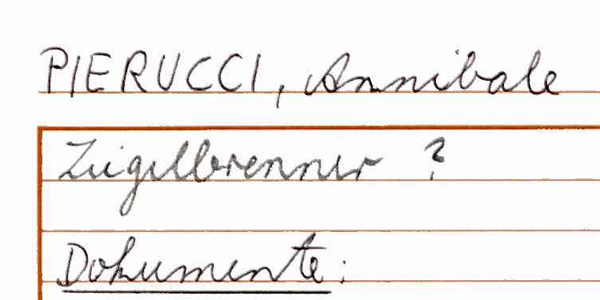 PIERUCCI, Annibale
Zigelbrenner ?
Dokumente: